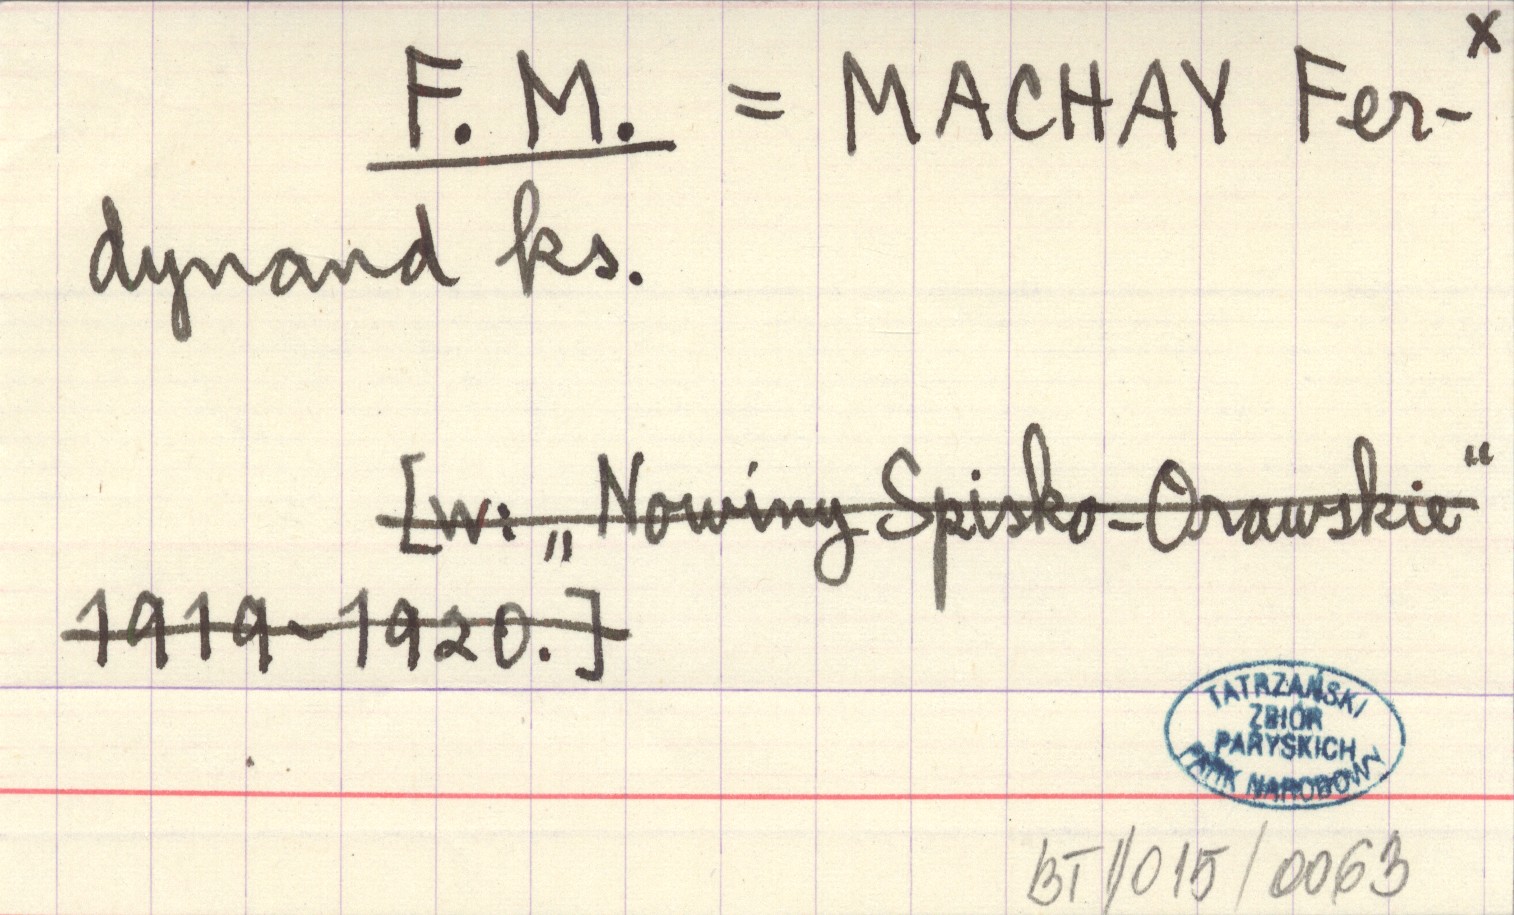 x
F. M. = MACHAY Fer-
dynand ks.
[w: „Nowiny Spisko-Orawskie“
1919-1920.]
TATRZAŃSKI
ZBIÓR
PARYSKICH
PARK NARODOWY
BT/015/0063